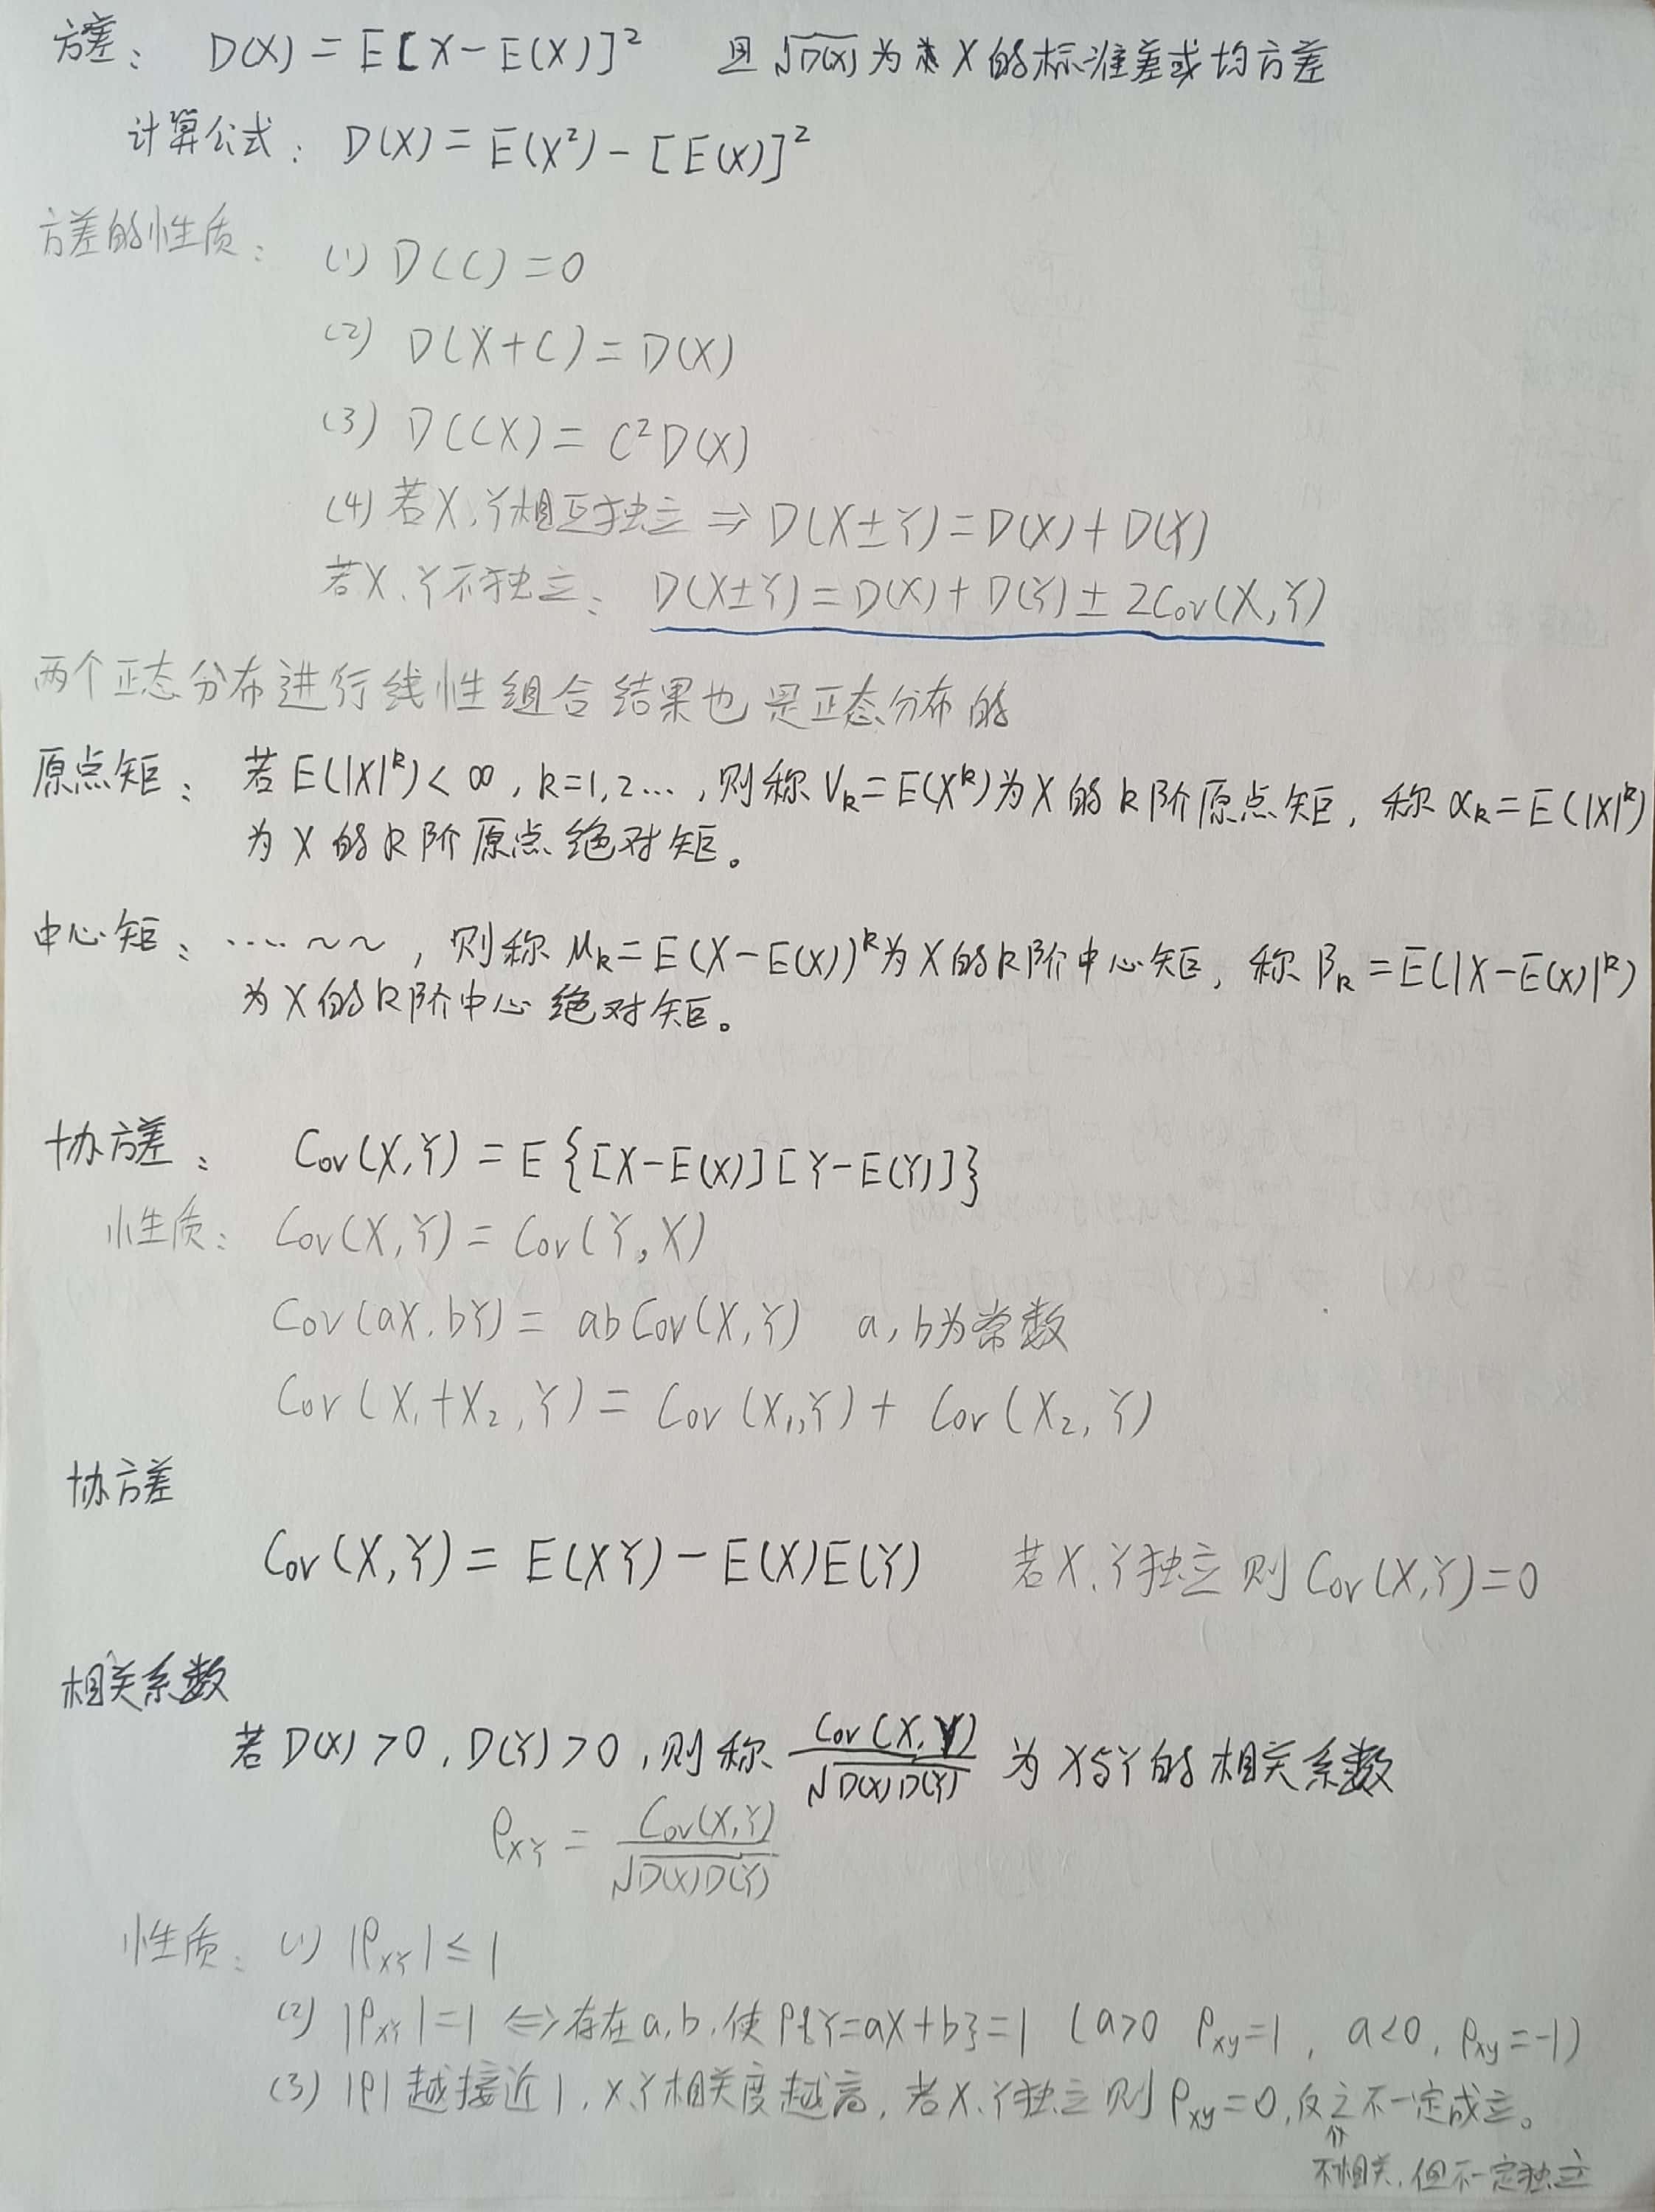 方差： D(X) = E[X-E(X)]² 且√D(X)为 X的标准差或均方差
计算公式： D(X) = E(X²) - [E(X)]²
方差的性质： (1) D(C) = 0
(2) D(X+C) = D(X)
(3) D(CX) = C²D(X)
(4) 若X、Y相互独立 ⇒ D(X±Y) = D(X) + D(Y)
若X、Y不独立： D(X±Y) = D(X) + D(Y) ± 2Cov(X,Y)
两个正态分布进行线性组合结果也是正态分布的
原点矩： 若E(|X|^k) < ∞, k=1,2…, 则称V_k = E(X^k)为X的k阶原点矩, 称α_k = E(|X|^k)
为X的k阶原点绝对矩。
中心矩： ····~~, 则称μ_k = E(X-E(X))^k为X的k阶中心矩, 称β_k = E(|X-E(X)|^k)
为X的k阶中心绝对矩。
协方差： Cov(X,Y) = E{[X-E(X)][Y-E(Y)]}
性质： Cov(X,Y) = Cov(Y,X)
Cov(aX,bY) = abCov(X,Y) a,b为常数
Cov(X₁+X₂,Y) = Cov(X₁,Y) + Cov(X₂,Y)
协方差
Cov(X,Y) = E(XY) - E(X)E(Y) 若X、Y独立则Cov(X,Y)=0
相关系数
若D(X)>0, D(Y)>0, 则称 Cov(X,Y)/√D(X)D(Y) 为X与Y的相关系数
ρ_XY = Cov(X,Y)/√D(X)D(Y)
性质： (1) |ρ_XY| ≤ 1
(2) |ρ_XY| = 1 ⇔ 存在a,b,使P{Y=aX+b}=1 (a>0 ρ_xy=1, a<0, ρ_xy=-1)
(3) |ρ|越接近1, X、Y相关度越高, 若X、Y独立则ρ_xy=0,反之不一定成立。
⇑
不相关,但不一定独立